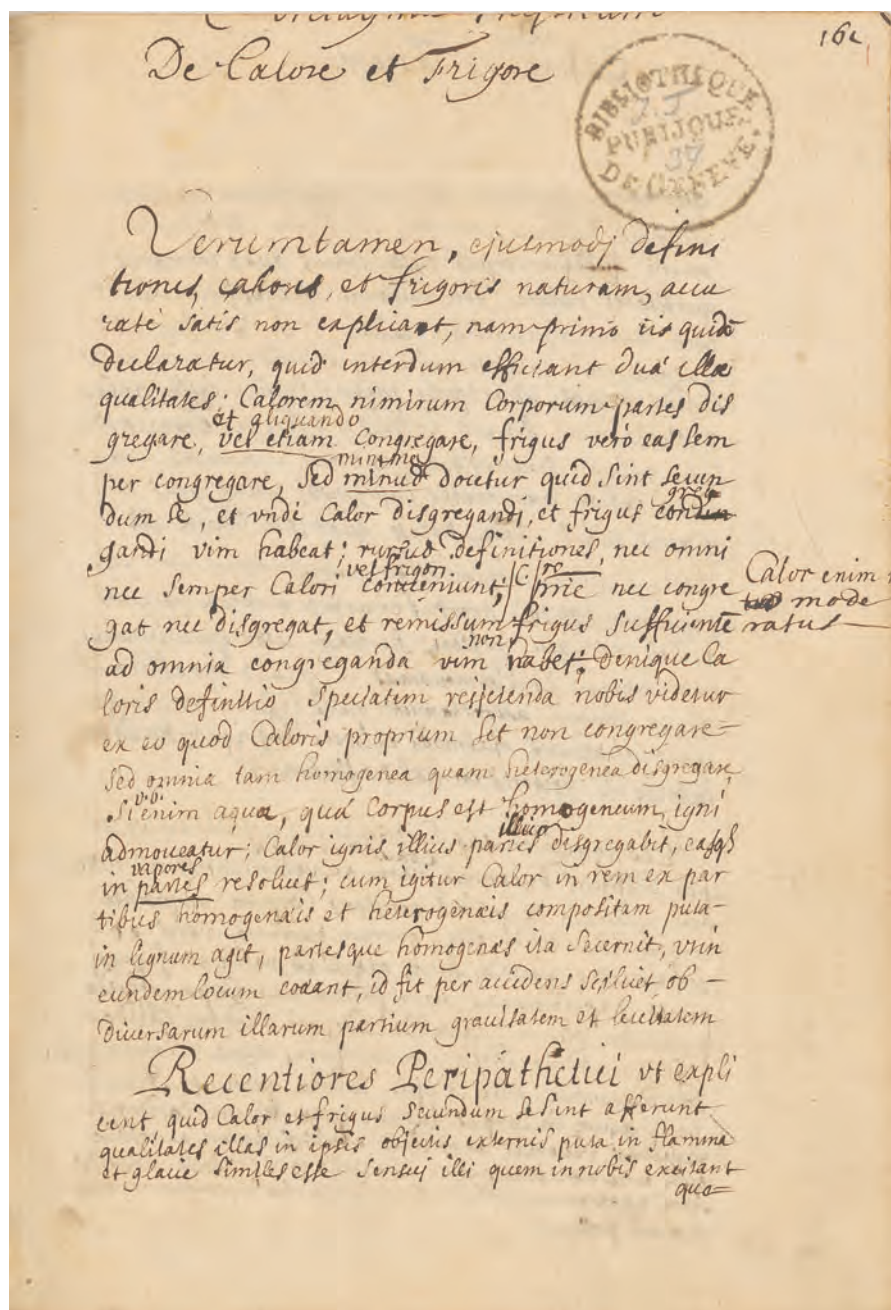 De Calore et Frigore
161
BIBLIOTHEQUE
PUBLIQUE
DE GENEVE.
Verumtamen, ejusmodj defini
tiones, caloris, et frigoris naturam, accu
ratè satis non explicant, nam primo iis quidē
declaratur, quid interdum efficiant duæ illæ
qualitates; Calorem nimirum Corporum partes dis
et aliquando
gregare, vel etiam Congregare, frigus verò eas sem
minime
per congregare, sed minus docetur quid sint secun
greg
dum se, et undè Calor disgregandi, et frigus conden
gandi vim habeat; rursus definitiones, nec omni
vel frigori
nec semper Calori conveniunt; nec congre
Calor enim
mode
ratus
gat nec disgregat, et remissum frigus sufficientē
non
ad omnia congreganda vim habet; denique Ca
loris definitio speciatim reijcienda nobis videtur
ex eo quod Caloris proprium sit non congregare
sed omnia tam homogenea quam heterogenea disgregare,
v.g.
Si enim aqua, quæ Corpus est homogeneum, igni
illico
admoveatur; Calor ignis illius partes disgregabit, easqȝ
vapores
in partes resolvet; cum igitur Calor in rem ex par
tibus homogenæis et heterogenæis compositam puta
in lignum agit, partesque homogenæas ita secernit, ut in
eundem locum coëant, id fit per accidens scilicet ob
diversarum illarum partium gravitatem et levitatem
Recentiores Peripathetici ut expli
cent quid Calor et frigus secundum se sint afferunt
qualitates illas in ipsis objectis externis puta in flamma
et glacie similes esse sensuj illi quem in nobis excitant
quo